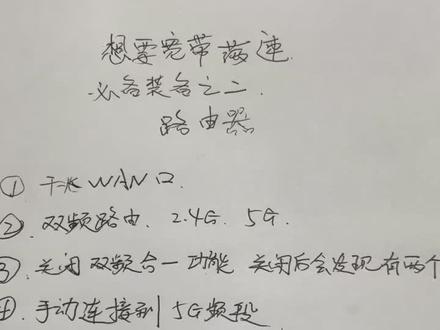 想要宽带满速
必备装备之二
路由器
① 千兆WAN口
② 双频路由. 2.4G. 5G.
③ 关闭双频合一功能 关闭后会发现有两个
④ 手动连接到5G频段